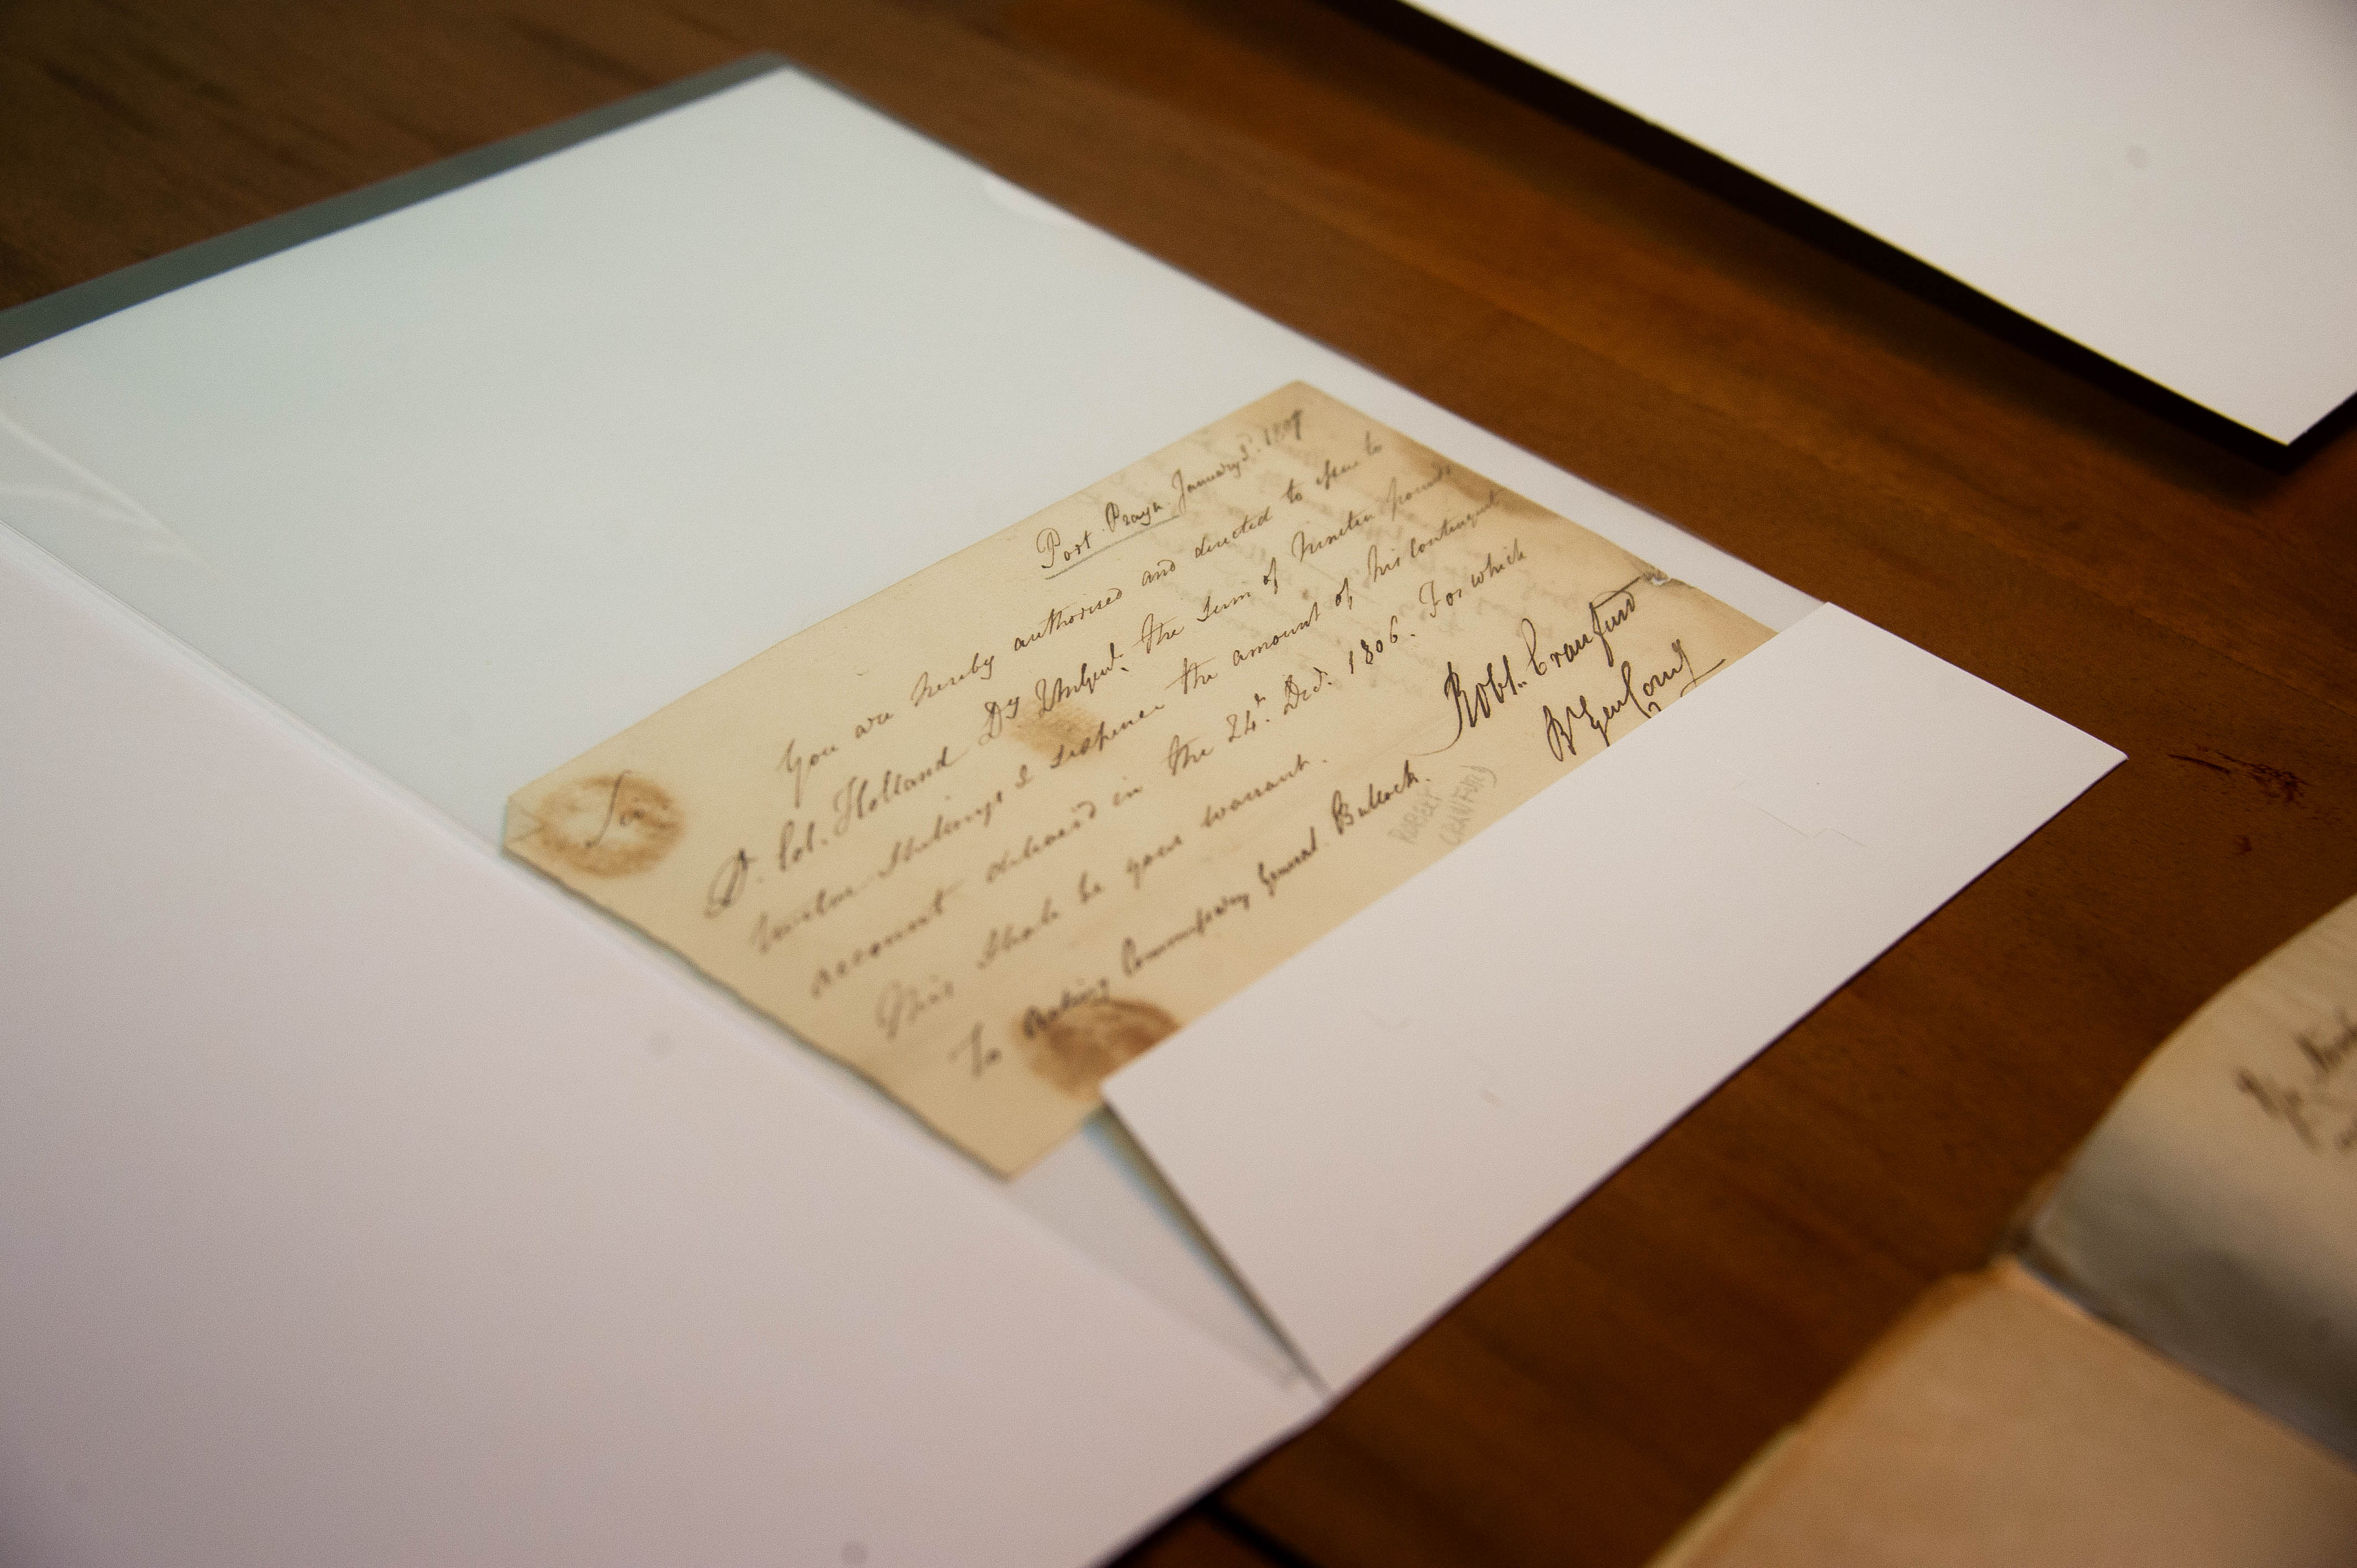 Port Praya January 5th. 1807
Sir
You are hereby authorised and directed to issue to
Lt. Col. Holland Dy the Sum of Nineteen pounds
twelve Shillings & sixpence the amount of his Contingent
account in the 24th. Decr. 1806. For which
this shall be your warrant.
Robt. Craufurd
B Gen Comg
To Acting Commissary General Bullock.
ROBERT
CRANFORD